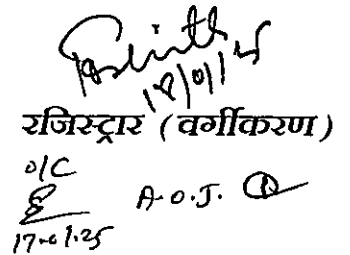 18/01/25
रजिस्ट्रार (वर्गीकरण)
O/C
17-01.25 A.O.J.